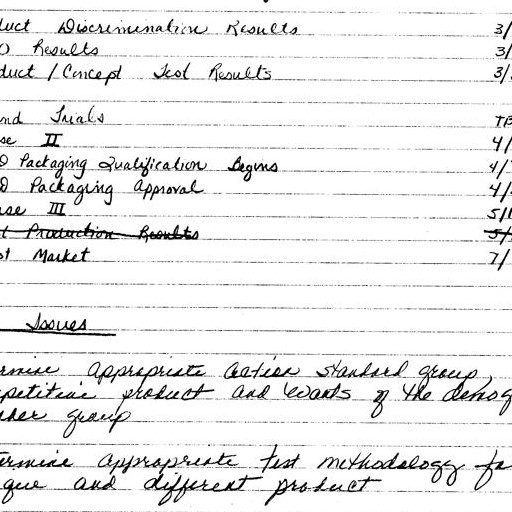 duct Discrimination Results 3/
) Results 3/
duct / Concept Test Results 3/
nd Trials TB
se II 4/
D Packaging Qualification Begins 4/
D Packaging Approval 4/
ase III 5/1
t Production Results 5/
st Market 7/
Issues
rmine appropriate action standard group,
petitive product and wants of the demog
group
ermine appropriate test methodology fo
que and different product